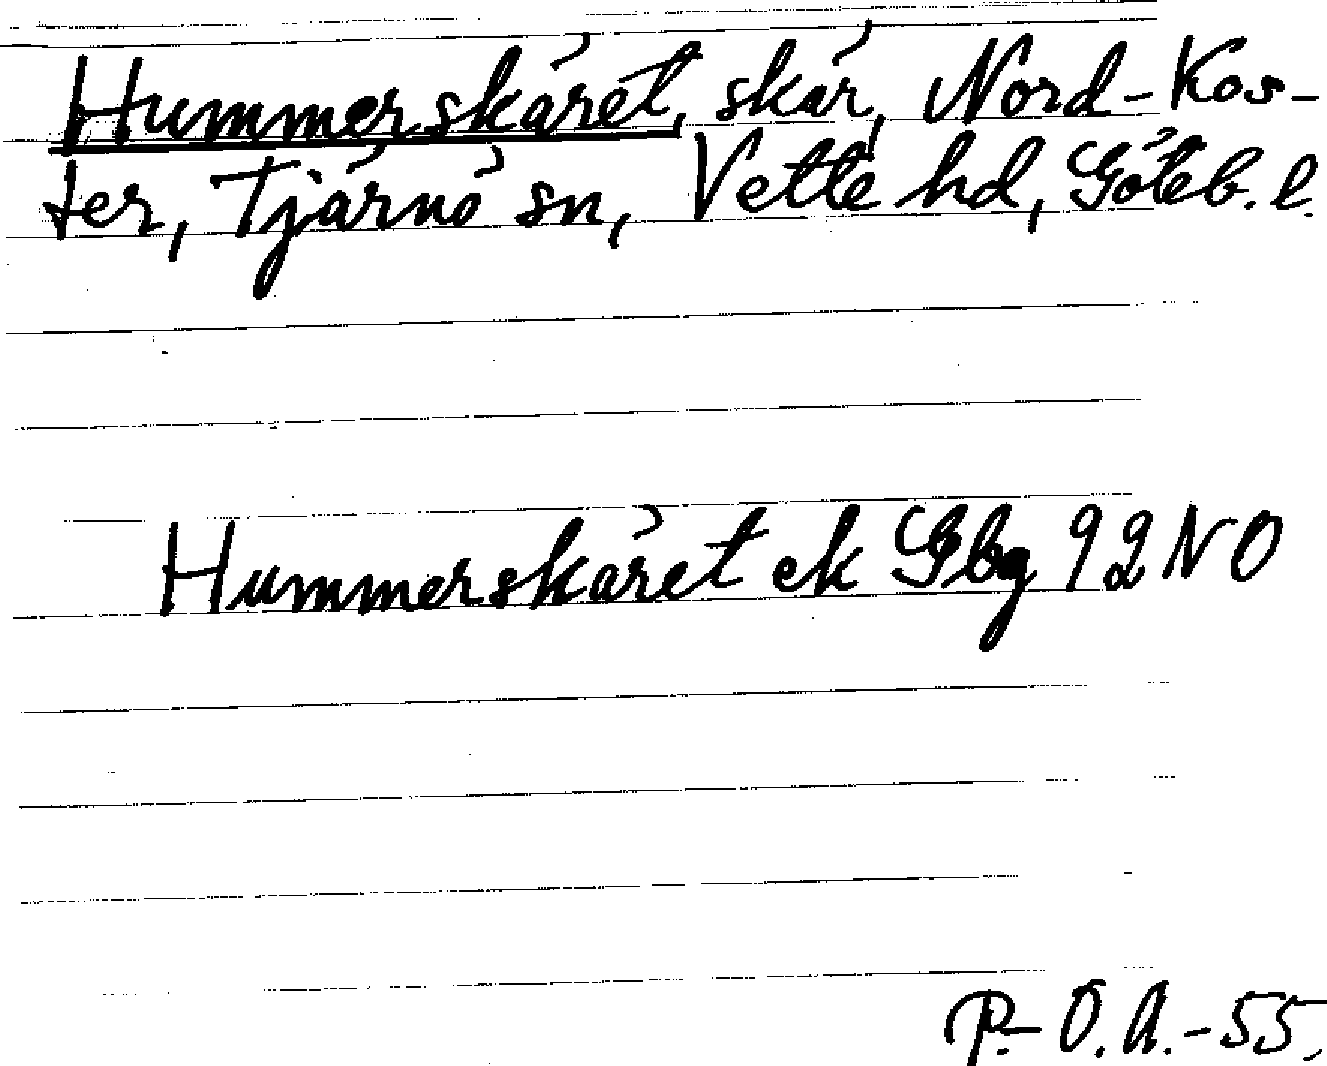 Hummerskäret, skär, Nord-Kos-
ter, Tjärnö sn, Vette hd, Göteb. l.
Hummerskäret ek Gbg 92 NO
P.-O.A.-55.